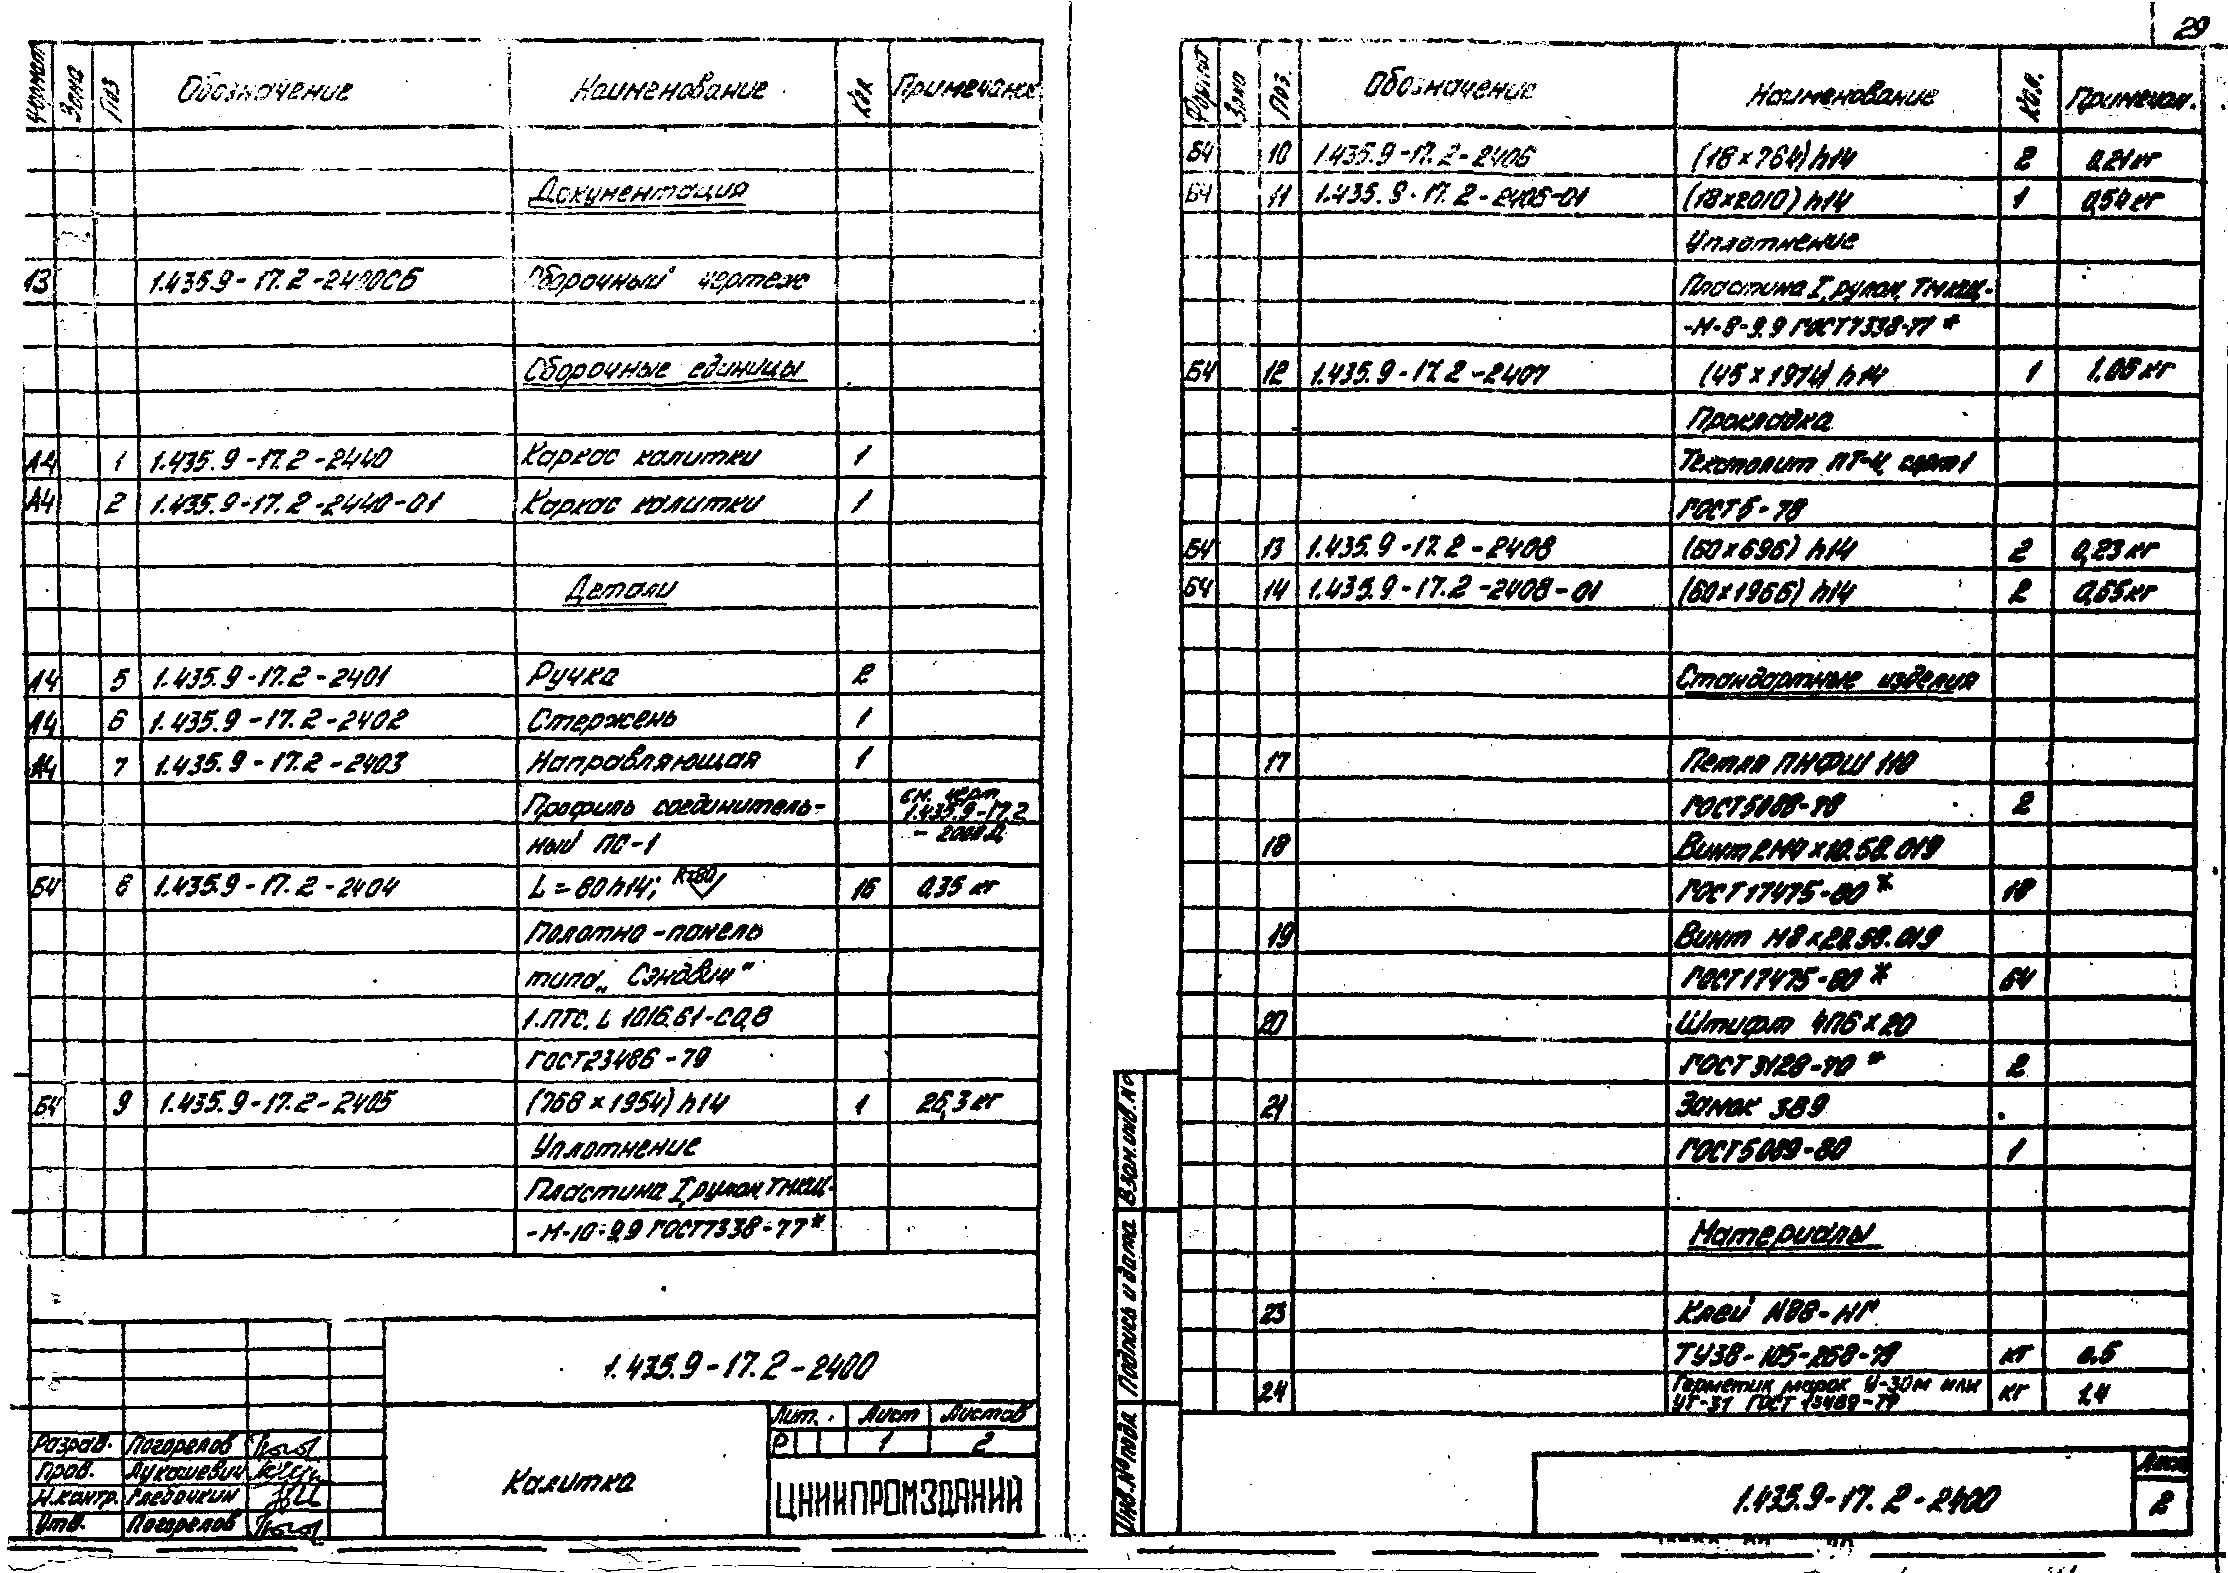 29
Формат Зона Поз Обозначение Наименование Кол Примечание
Документация
13 1.435.9-17.2-2400СБ Сборочный чертеж
Сборочные единицы
А4 1 1.435.9-17.2-2440 Каркас калитки 1
А4 2 1.435.9-17.2-2440-01 Каркас калитки 1
Детали
А4 5 1.435.9-17.2-2401 Ручка 2
А4 6 1.435.9-17.2-2402 Стержень 1
А4 7 1.435.9-17.2-2403 Направляющая 1
Профиль соединитель- см. черт 1.435.9-17.2
ный ПС-1
БЧ 8 1.435.9-17.2-2404 L=80h14; 16 0,35 кг
Полотно-панель
типа „Сэндвич"
1.ПТС. L 1016.61-С0,8
ГОСТ23486-79
БЧ 9 1.435.9-17.2-2405 (768×1954)h14 1 26,3 кг
Уплотнение
Пластина I, рулон, ТМКЩ-
-М-10-9.9 ГОСТ7338-77*
1.435.9-17.2-2400
Лит. Лист Листов
Р 1 2
Разраб. Погорелов
Пров. Лукашевич
Н.контр.
Утв. Погорелов
Калитка
ЦНИИПРОМЗДАНИЙ
Формат Зона Поз. Обозначение Наименование Кол. Примечан.
БЧ 10 1.435.9-17.2-2406 (18×764)h14 2 0,21кг
БЧ 11 1.435.9-17.2-2406-01 (18×2010)h14 1 0,54кг
Уплотнение
Пластина I, рулон, ТМКЩ-
-М-8-9.9 ГОСТ7338-77*
БЧ 12 1.435.9-17.2-2407 (45×1974)h14 1 1.06 кг
Прокладка
Текстолит ПТ-4, сорт 1
ГОСТ5-78
БЧ 13 1.435.9-17.2-2408 (60×696)h14 2 0,23 кг
БЧ 14 1.435.9-17.2-2408-01 (60×1966)h14 2 0,65кг
Стандартные изделия
17 Петля ПНФШ 110
ГОСТ5088-78 2
18 Винт 2М4×10.58.019
ГОСТ17475-80* 18
19 Винт М8×20.58.019
ГОСТ17475-80* 64
20 Штифт 4П6×20
ГОСТ3128-70* 2
21 Замок ЗВ9
ГОСТ5089-80 1
Материалы
23 Клей №88-НП
ТУ38-105-268-79 кг 0,6
24 Герметик марок У-30м или
УТ-31 ГОСТ 13489-79 кг 1,4
Инв.№подл Подпись и дата Взам.инв.№
1.435.9-17.2-2400
Лист
2